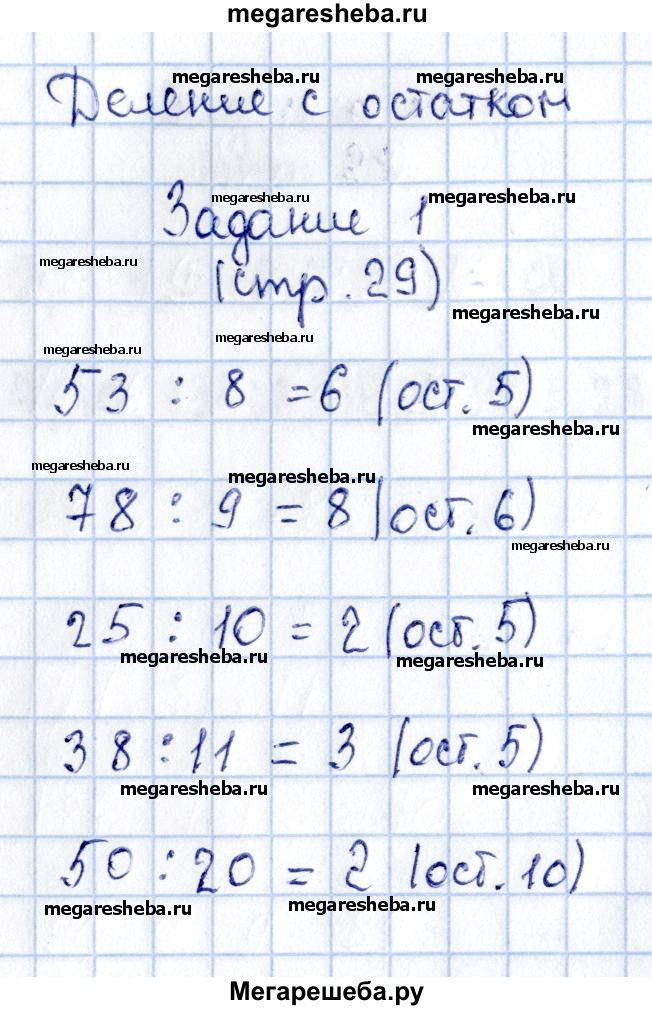 megaresheba.ru
megaresheba.ru megaresheba.ru
Деление с остатком
megaresheba.ru megaresheba.ru
Задание 1
megaresheba.ru
(стр. 29)
megaresheba.ru
megaresheba.ru
megaresheba.ru
53 : 8 = 6 (ост. 5)
megaresheba.ru
megaresheba.ru
megaresheba.ru
78 : 9 = 8 (ост. 6)
megaresheba.ru
25 : 10 = 2 (ост. 5)
megaresheba.ru megaresheba.ru
38 : 11 = 3 (ост. 5)
megaresheba.ru megaresheba.ru
50 : 20 = 2 (ост. 10)
megaresheba.ru megaresheba.ru
Мегарешеба.ру